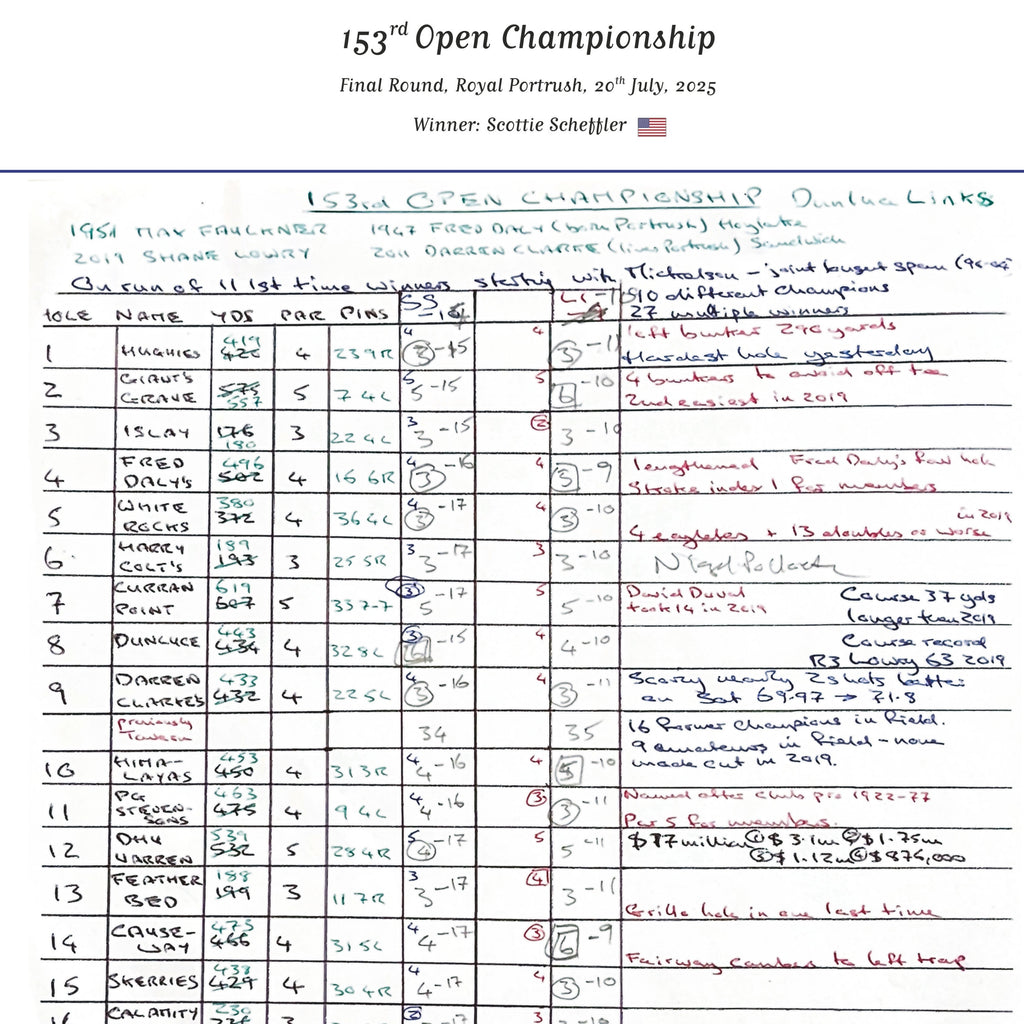 153rd Open Championship
Final Round, Royal Portrush, 20th July, 2025
Winner: Scottie Scheffler
153rd OPEN CHAMPIONSHIP Dunluce Links
1951 MAX FAULKNER 1947 FRED DALY (born Portrush) Hoylake
2019 SHANE LOWRY 2011 DARREN CLARKE (lives Portrush) Sandwich
On run of 11 1st time winners starting with Mickelson - joint longest span
10 different champions
27 multiple winners
HOLE NAME YDS PAR PINS SS
1 HUGHIES 419 426 4 239R 4 3 -15 4 3 -11 left bunker 296 yards
Hardest hole yesterday
2 GIANT'S GRAVE 575 557 5 7 4L 5 5 -15 5 6 -10 4 bunkers to avoid off tee
2nd easiest in 2019
3 ISLAY 176 180 3 22 4L 3 3 -15 2 3 -10
4 FRED DALY'S 496 502 4 16 6R 4 3 -16 4 3 -9 lengthened Fred Daly's fav hole
Stroke index 1 for members
5 WHITE ROCKS 380 372 4 36 4L 4 3 -17 3 -10 in 2019
4 eagles + 13 doubles or worse
6 HARRY COLT'S 189 193 3 25 5R 3 3 -17 3 3 -10
7 CURRAN POINT 619 607 5 33 7-7 3 5 -17 5 5 -10 David Duval took 14 in 2019 Course 37 yds
longer than 2019
8 DUNLUCE 443 434 4 32 8L 3 6 -15 4 4 -10 Course record
R3 Lowry 63 2019
9 DARREN CLARKE'S 433 432 4 22 5L 4 3 -16 4 3 -11 Scoring nearly 2 shots better
on Sat 69.97 → 71.8
previously Tavern 34 35 16 former champions in field.
9 amateurs in field - none
made cut in 2019.
10 HIMA-LAYAS 453 450 4 31 3R 4 4 -16 4 5 -10
11 PG STEVEN-SONS 463 475 4 9 4L 4 4 -16 3 3 -11 Named after club pro 1922-77
Par 5 for members.
12 DHU VARREN 539 532 5 28 4R 5 4 -17 5 5 -11 $17 million ① $3.1m ② $1.75m
③ $1.12m ④ $876,000
13 FEATHER BED 188 199 3 11 7R 3 3 -17 4 3 -11
Grillo hole in one last time
14 CAUSE-WAY 473 466 4 31 5L 4 4 -17 3 6 -9
Fairway cambers to left trap
15 SKERRIES 433 429 4 30 4R 4 4 -17 4 3 -10
CALAMITY 230 3 2 -17 3 -10